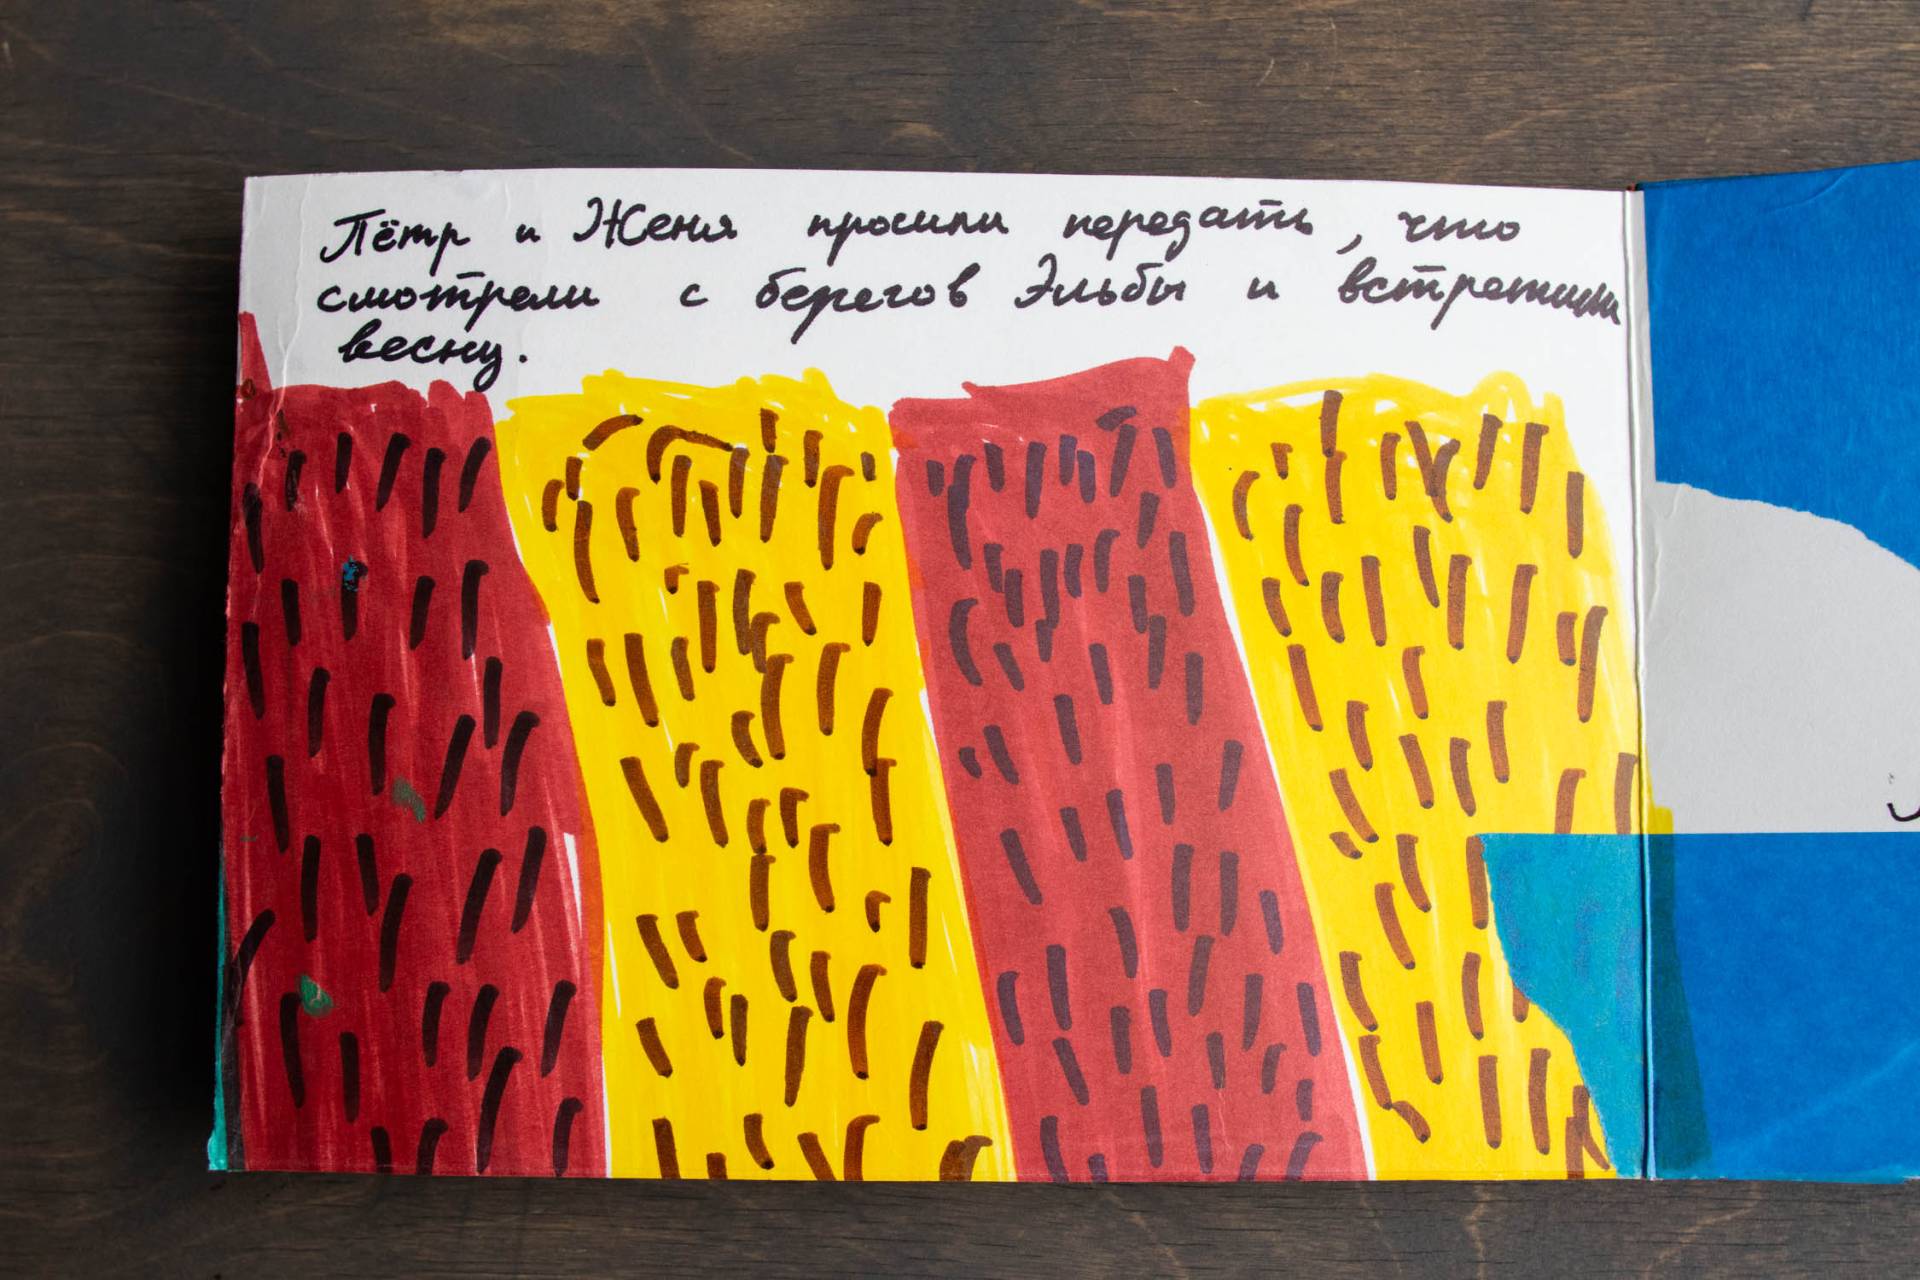 Пётр и Женя просили передать, что
смотрели с берегов Эльбы и встретили
весну.